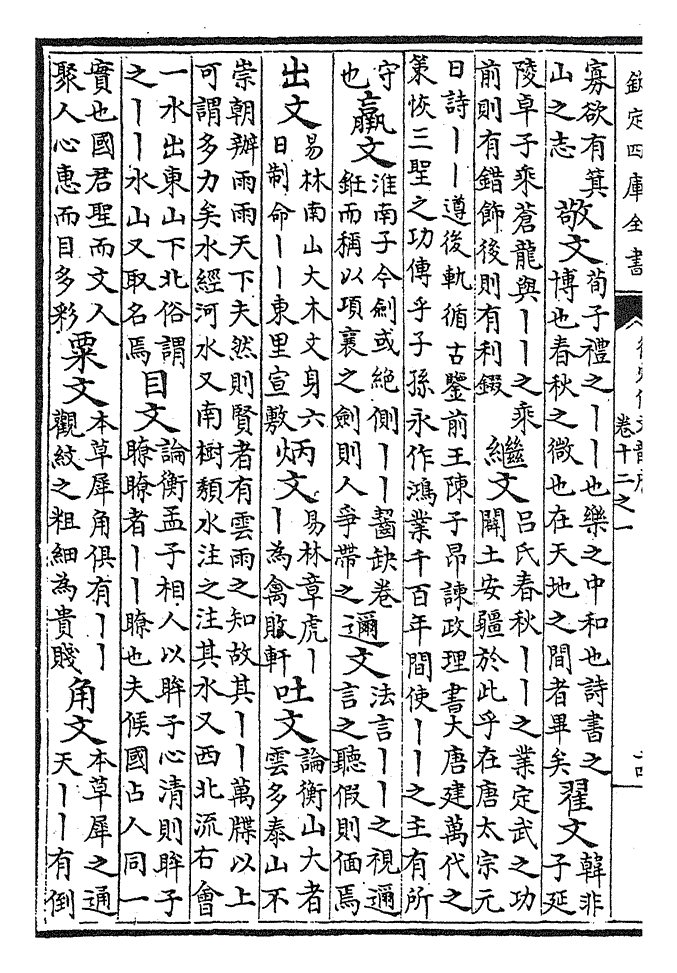 欽定四庫全書
卷十二之一
寡欲有箕山之志 敬文 荀子禮之丨丨也樂之中和也詩書之博也春秋之微也在天地之間者畢矣 翟文 韓非子延
陵卓子乘蒼龍與丨丨之乘前則有錯飾後則有利錣 繼文 呂氏春秋丨丨之業定武之功闢土安疆於此乎在唐太宗元
日詩丨丨遵後軌循古鑒前王陳子昂諫政理書大唐建萬代之策恢三聖之功傳乎子孫永作鴻業千百年間使丨丨之主有所
守也 羸文 淮南子今劍或絶側丨丨齧缺卷銋而稱以項襄之劍則人爭帶之 邇文 法言丨丨之視邇言之聽假則偭焉
出文 易林南山大木文身六日制命丨丨東里宣敷 炳文 易林章虎丨丨為禽敗軒 吐文 論衡山大者雲多泰山不
崇朝辦雨雨天下夫然則賢者有雲雨之知故其丨丨萬牒以上可謂多力矣水經河水又南樹頹水注之注其水又西北流右會
一水出東山下北俗謂之丨丨水山又取名焉 目文 論衡孟子相人以眸子心清則眸子瞭瞭者丨丨瞭也夫候國占人同一
實也國君聖而文人聚人心惠而目多彩 粟文 本草犀角俱有丨丨觀紋之粗細為貴賤 角文 本草犀之通天丨丨有倒